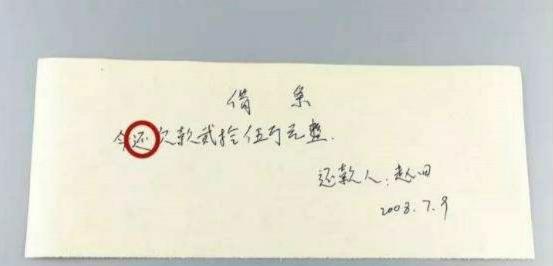 借条
今还欠款贰拾伍万元整.
还款人:赵田
2008.7.9